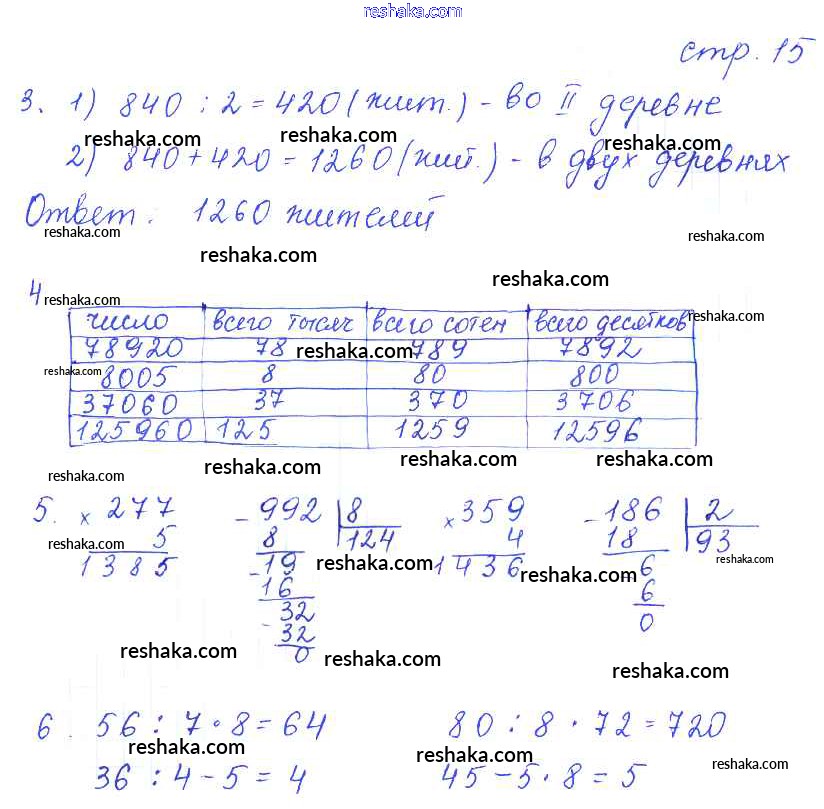 reshaka.com
стр. 15
3. 1) 840 : 2 = 420 (жит.) - во II деревне
reshaka.com reshaka.com
2) 840 + 420 = 1260 (жит.) - в двух деревнях
reshaka.com
Ответ: 1260 жителей
reshaka.com reshaka.com
reshaka.com
reshaka.com
4 reshaka.com
число всего тысяч всего сотен всего десятков
reshaka.com
78920 78 789 7892
reshaka.com
8005 8 80 800
reshaka.com
37060 37 370 3706
125960 125 1259 12596
reshaka.com reshaka.com reshaka.com
reshaka.com
5. × 277 - 992 | 8 × 359 - 186 | 2
5 8 124 4 18 93
reshaka.com
1385 - 19 1436 - 6
reshaka.com reshaka.com reshaka.com
16 6
- 32 0
32
0
reshaka.com reshaka.com reshaka.com
6. 56 : 7 · 8 = 64 80 : 8 · 72 = 720
reshaka.com reshaka.com reshaka.com
36 : 4 - 5 = 4 45 - 5 · 8 = 5